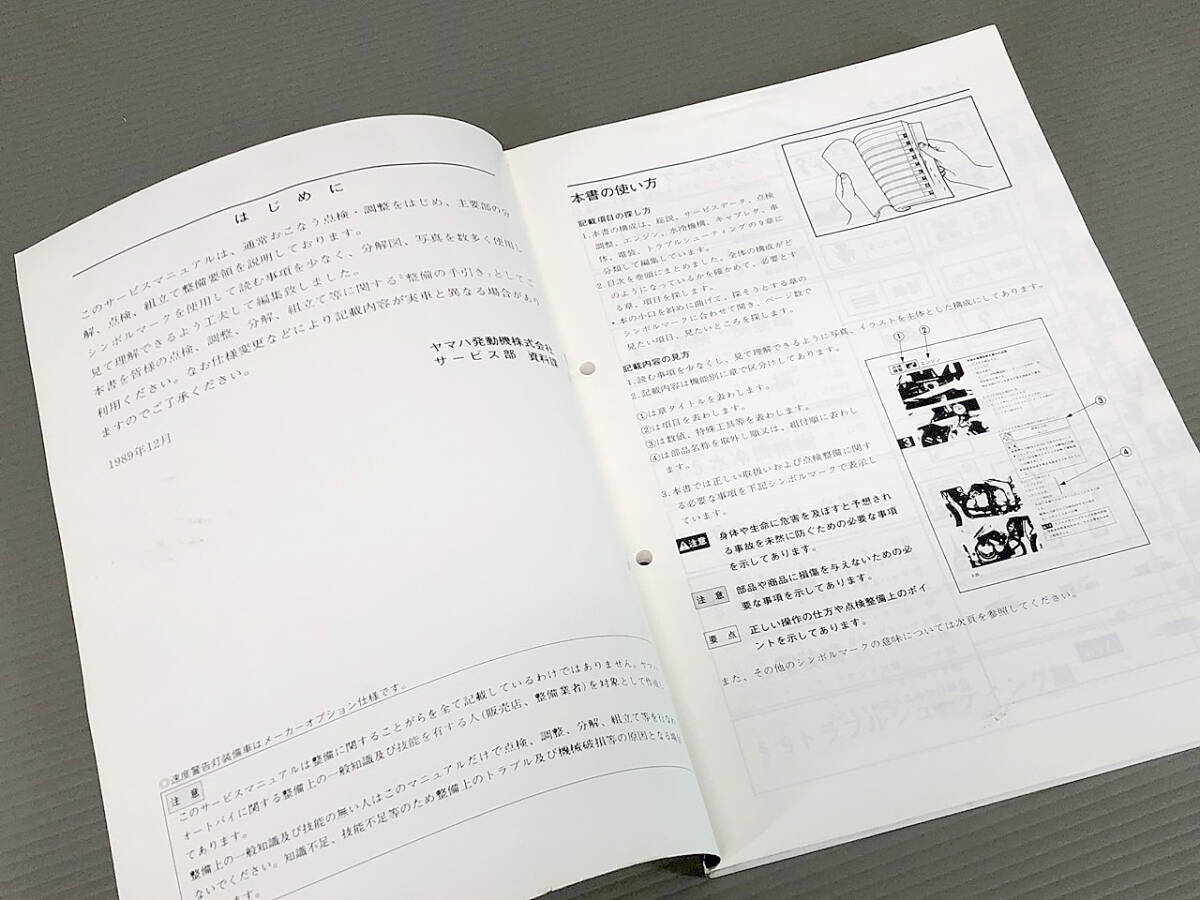 はじめに
このサービスマニュアルは、通常おこなう点検・調整をはじめ、主要部の分
解、点検、組立て整備要領を説明しております。
シンボルマークを使用して読む事項を少なく、分解図、写真を数多く使用し
見て理解できるよう工夫して編集致しました。
本書を皆様の点検、調整、分解、組立て等に関する“整備の手引き”としてご
利用ください。なお仕様変更などにより記載内容が実車と異なる場合があり
ますのでご了承ください。
ヤマハ発動機株式会社
サービス部 資料課
1989年12月
◎速度警告灯装備車はメーカーオプション仕様です。
注意
このサービスマニュアルは整備に関することがらを全て記載しているわけではありません。ヤマハ
オートバイに関する整備上の一般知識及び技能を有する人(販売店、整備業者)を対象として作成し
てあります。
整備上の一般知識及び技能の無い人はこのマニュアルだけで点検、調整、分解、組立て等を行なわ
ないでください。知識不足、技能不足等のため整備上のトラブル及び機械破損等の原因となる場合
ます。
本書の使い方
記載項目の探し方
1.本書の構成は、総説、サービスデータ、点検
調整、エンジン、水冷機構、キャブレタ、車
体、電装、トラブルシューティングの9章に
分類して編集しています。
2.目次を巻頭にまとめました。全体の構成がど
のようになっているかを確かめて、必要とす
る章、項目を探します。
•本の小口を斜めに曲げて、探そうとする章の
シンボルマークに合わせて開き、ページ数で
見たい項目、見たいところを探します。
記載内容の見方
1.読む事項を少なくし、見て理解できるように写真、イラストを主体とした構成にしてあります。
2.記載内容は機能別に章で区分けしてあります。
①は章タイトルを表わします。
②は項目を表わします。
③は数値、特殊工具等を表わします。
④は部品名称を取外し順又は、組付順に表わし
ます。
3.本書では正しい取扱いおよび点検整備に関す
る必要な事項を下記シンボルマークで表示し
ています。
注意 身体や生命に危害を及ぼすと予想され
る事故を未然に防ぐための必要な事項
を示してあります。
注意 部品や商品に損傷を与えないための必
要な事項を示してあります。
要点 正しい操作の仕方や点検整備上のポイ
ントを示してあります。
また、その他のシンボルマークの意味については次頁を参照してください。
① ②
エンジン
③
④